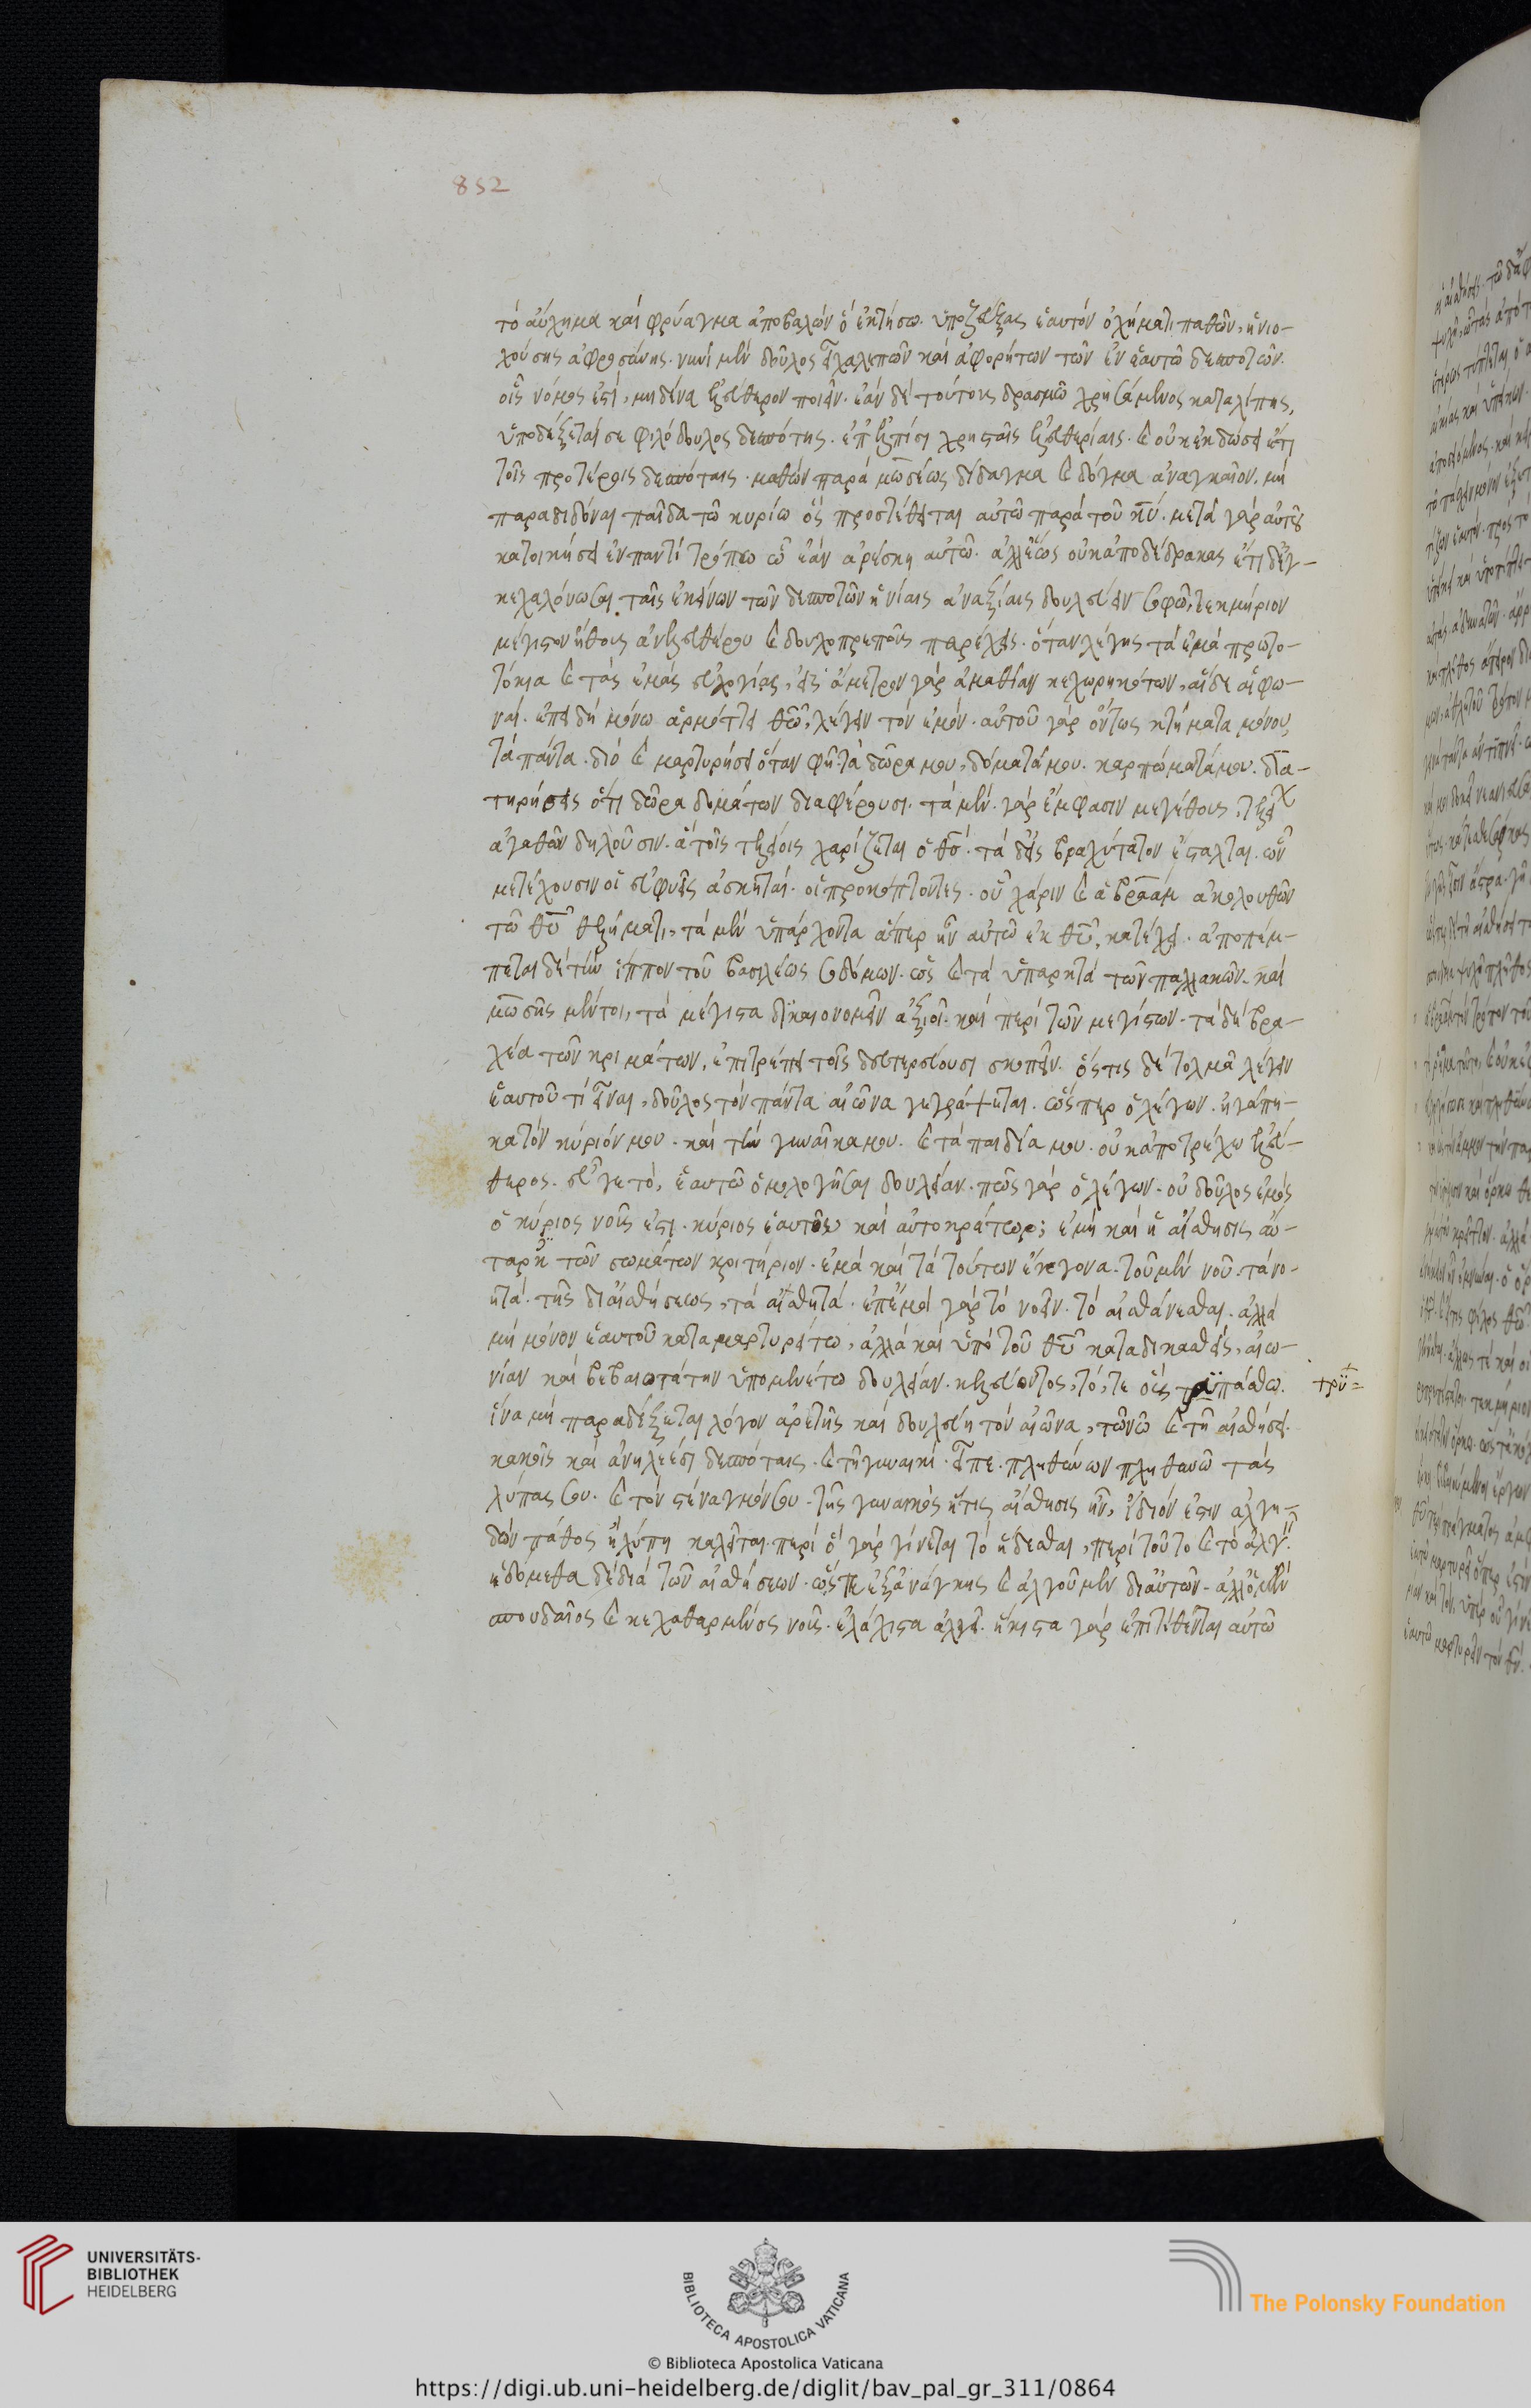 852
τὸ αὔχημα καὶ φρύαγμα ἀποβαλὼν ὃ ἐκτήσω. ὑποζεύξας ἑαυτὸν ὀχήματι παθῶν, ἡνιο-
χούσης ἀφροσύνης. νυνὶ μὲν δοῦλος εἶ χαλεπῶν καὶ ἀφορήτων τῶν ἐν ἑαυτῶ δεσποτῶν.
οἷς νόμος ἐστί, μηδένα ἐλεύθερον ποιεῖν. ἐὰν δὲ τούτους δρασμῶ χρησάμενος καταλίπης,
ὑποδέξεταί σε φιλόδουλος δεσπότης. ἐπ' ἐλπίσι χρησταῖς ἐλευθερίαις. καὶ οὐκ ἐκδώσει ἔτι
τοῖς προτέροις δεσπόταις. μαθὼν παρὰ μωσέως δίδαγμα καὶ δόγμα ἀναγκαῖον. μὴ
παραδιδόναι παῖδα τῶ κυρίω ὃς προστέθειται αὐτῶ παρὰ τοῦ κυ. μετὰ γὰρ αὐτοῦ
κατοικήσει ἐν παντὶ τρόπω ὧ ἐὰν ἀρέσκη αὐτῶ. ἀλλ' ἕως οὐκ ἀποδέδρακας ἔτι δ' ἐγ-
κεχαλίνωσαι ταῖς ἐκείνων τῶν δεσποτῶν ἡνίαις ἀναξίαις δουλεύειν σοφῶ, τεκμήριον
μέγιστον ἤθους ἀνελευθέρου καὶ δουλοπρεποῦς παρέχεις. ὅταν λέγης τὰ ἐμὰ πρωτο-
τόκια καὶ τὰς ἐμὰς εὐλογίας, εἰς ἄμετρον γὰρ ἀμαθίαν κεχωρηκότων, αἵδε αἱ φω-
ναί. ἐπειδὴ μόνω ἁρμόττει θῶ, λέγειν τὸν ἐμόν. αὐτοῦ γὰρ ὄντως κτήματα μόνου,
τὰ πάντα. διὸ καὶ μαρτυρήσει ὅταν φῆ τὰ δῶρα μου, δόματά μου. καρπώματά μου. δια-
τηρήσεις ὅτι δῶρα δομάτων διαφέρουσι. τὰ μὲν. γὰρ ἔμφασιν μεγέθους, τελεί
ἀγαθῶν δηλοῦσιν. ἃ τοῖς τελείοις χαρίζεται ὁ θσ. τὰ δ' εἰς βραχύτατον ἔσταλται. ὧν
μετέχουσιν οἱ εὐφυεῖς ἀσκηταί. οἱ προκόπτοντες. οὗ χάριν καὶ ἀβραὰμ ἀκολουθῶν
τῶ θῦ θελήματι, τὰ μὲν ὑπάρχοντα ἅπερ ἦν αὐτῶ ἐκ θῦ, κατέχει. ἀποπέμ-
πεται δὲ τὴν ἵππον τοῦ βασιλέως σοδόμων. ὡς καὶ τὰ ὑπαρκτὰ τῶν παλλακῶν. καὶ
μωσῆς μέντοι, τὰ μέγιστα δικαιονομεῖν ἀξιοῖ. καὶ περὶ τῶν μεγίστων. τὰ δὲ βρα-
χέα τῶν κριμάτων, ἐπιτρέπει τοῖς δευτερεύουσι σκοπεῖν. ὅστις δὲ τολμᾶ λέγειν
ἑαυτοῦ τὶ εἶναι, δοῦλος τὸν πάντα αἰῶνα γεγράψεται. ὥσπερ ὁ λέγων. ἠγάπη-
κα τὸν κύριόν μου. καὶ τὴν γυναῖκα μου. καὶ τὰ παιδία μου. οὐκ ἀποτρέχω ἐλεύ-
θερος. εὖ γε τὸ, ἑαυτῶ ὁμολογῆσαι δουλείαν. πῶς γὰρ ὁ λέγων. οὐ δοῦλος ἐμός
ὁ κύριος νοῦς ἐστι. κύριος ἑαυτοῦ, καὶ αὐτοκράτωρ; ἐμὴ καὶ ἡ αἴσθησις αὐ-
ταρκη τῶν σωμάτων κριτήριον. ἐμὰ καὶ τὰ τούτων ἔκγονα. τοῦ μὲν νοῦ. τὰ νο-
ητά. τῆς δι' αἰσθήσεως, τὰ αἰσθητά. ἐπ' ἐμοὶ γὰρ τὸ νοεῖν. τὸ αἰσθάνεσθαι. ἀλλὰ
μὴ μόνον ἑαυτοῦ καταμαρτυρείτω, ἀλλὰ καὶ ὑπὸ τοῦ θῦ καταδικασθεὶς, αἰω-
νίαν καὶ βεβαιοτάτην ὑπομενέτω δουλείαν. κελεύοντος, τό, τε οὖς τρυπάσθω.
τρυ=
ἵνα μὴ παραδέξηται λόγον ἀρετῆς καὶ δουλεύη τὸν αἰῶνα, τῶ νῶ καὶ τῆ αἰσθήσει.
κακοῖς καὶ ἀνηλεέσι δεσπόταις. καὶ τῆ γυναικί. εἶπε. πληθύνων πληθυνῶ τάς
λύπας σου. καὶ τὸν στεναγμόν σου. τῆς γυναικός ἥτις αἴσθησις ἦν, ἴδιόν ἐστιν ἀλγη-
δών πάθος ἣ λύπη καλεῖται. περὶ ὃ γὰρ γίνεται τὸ ἥδεσθαι, περὶ τοῦτο καὶ τὸ ἀλγῆ.
ἡδόμεθα δὲ διὰ τῶν αἰσθήσεων. ὥστε ἐξ ἀνάγκης καὶ ἀλγοῦμεν δι' αὐτῶν. ἀλλ' ὁ μὲν
σπουδαῖος καὶ κεκαθαρμένος νοῦς. ἐλάχιστα ἀλγεῖ. ἥκιστα γὰρ ἐπιτίθενται αὐτῶ
UNIVERSITÄTS-
BIBLIOTHEK
HEIDELBERG
BIBLIOTECA APOSTOLICA VATICANA
The Polonsky Foundation
© Biblioteca Apostolica Vaticana
https://digi.ub.uni-heidelberg.de/diglit/bav_pal_gr_311/0864